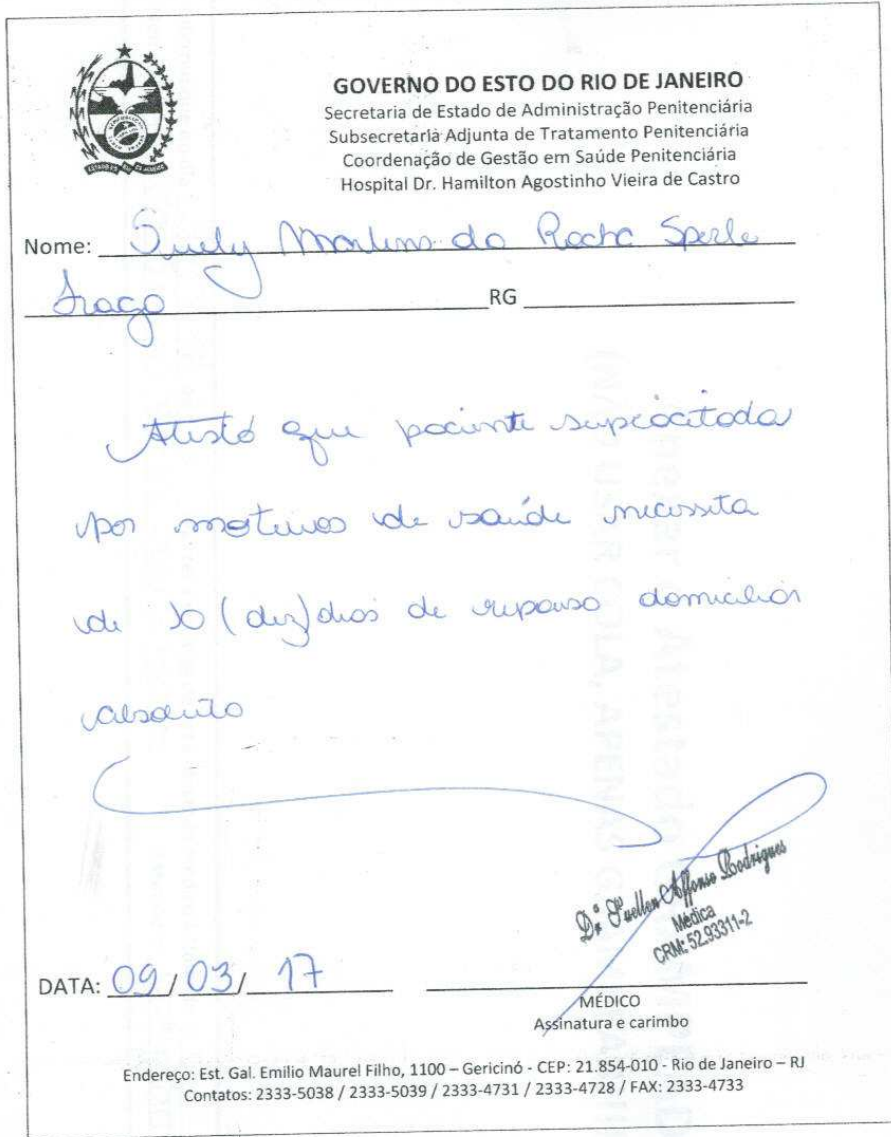 GOVERNO DO ESTO DO RIO DE JANEIRO
Secretaria de Estado de Administração Penitenciária
Subsecretaria Adjunta de Tratamento Penitenciária
Coordenação de Gestão em Saúde Penitenciária
Hospital Dr. Hamilton Agostinho Vieira de Castro
Nome: Suely Martins da Rocha Sperle
RG
Atesto que paciente supracitada
por motivos de saúde necessita
de 10 (dez) dias de repouso domiciliar
absoluto
Drª Suellen Affonso Rodrigues
Médica
CRM: 52.93311-2
DATA: 09/03/17
MÉDICO
Assinatura e carimbo
Endereço: Est. Gal. Emilio Maurel Filho, 1100 – Gericinó - CEP: 21.854-010 - Rio de Janeiro – RJ
Contatos: 2333-5038 / 2333-5039 / 2333-4731 / 2333-4728 / FAX: 2333-4733